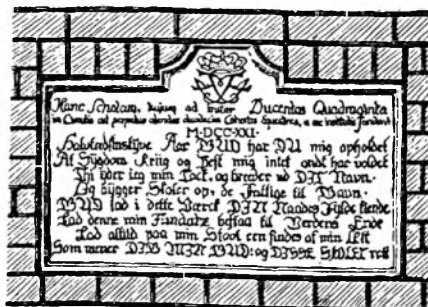 Hanc Scholam, hujus ad instar Ducentas Quadraginta
ad perpetuo alendas duodecim Cohortes Equestres,
M·DCC·XXI·
Halvtredsinstyve Aar GUD har DU mig opholdet
At Sygdom Kriig og Pest mig intet ondt har voldet
Thi yder jeg min Tack, og breeder ud DIT Navn·
Og bygger Skoler op, de Fattige til Gavn·
GUD lad i dette Værck DIN Naades Fylde kiende
Lad denne min Fundatz bestaa til Verdens Ende
Lad altid paa min Stool een findes af min Æt
Som mener DIG MIN GUD: og DISSE SKOLER ret